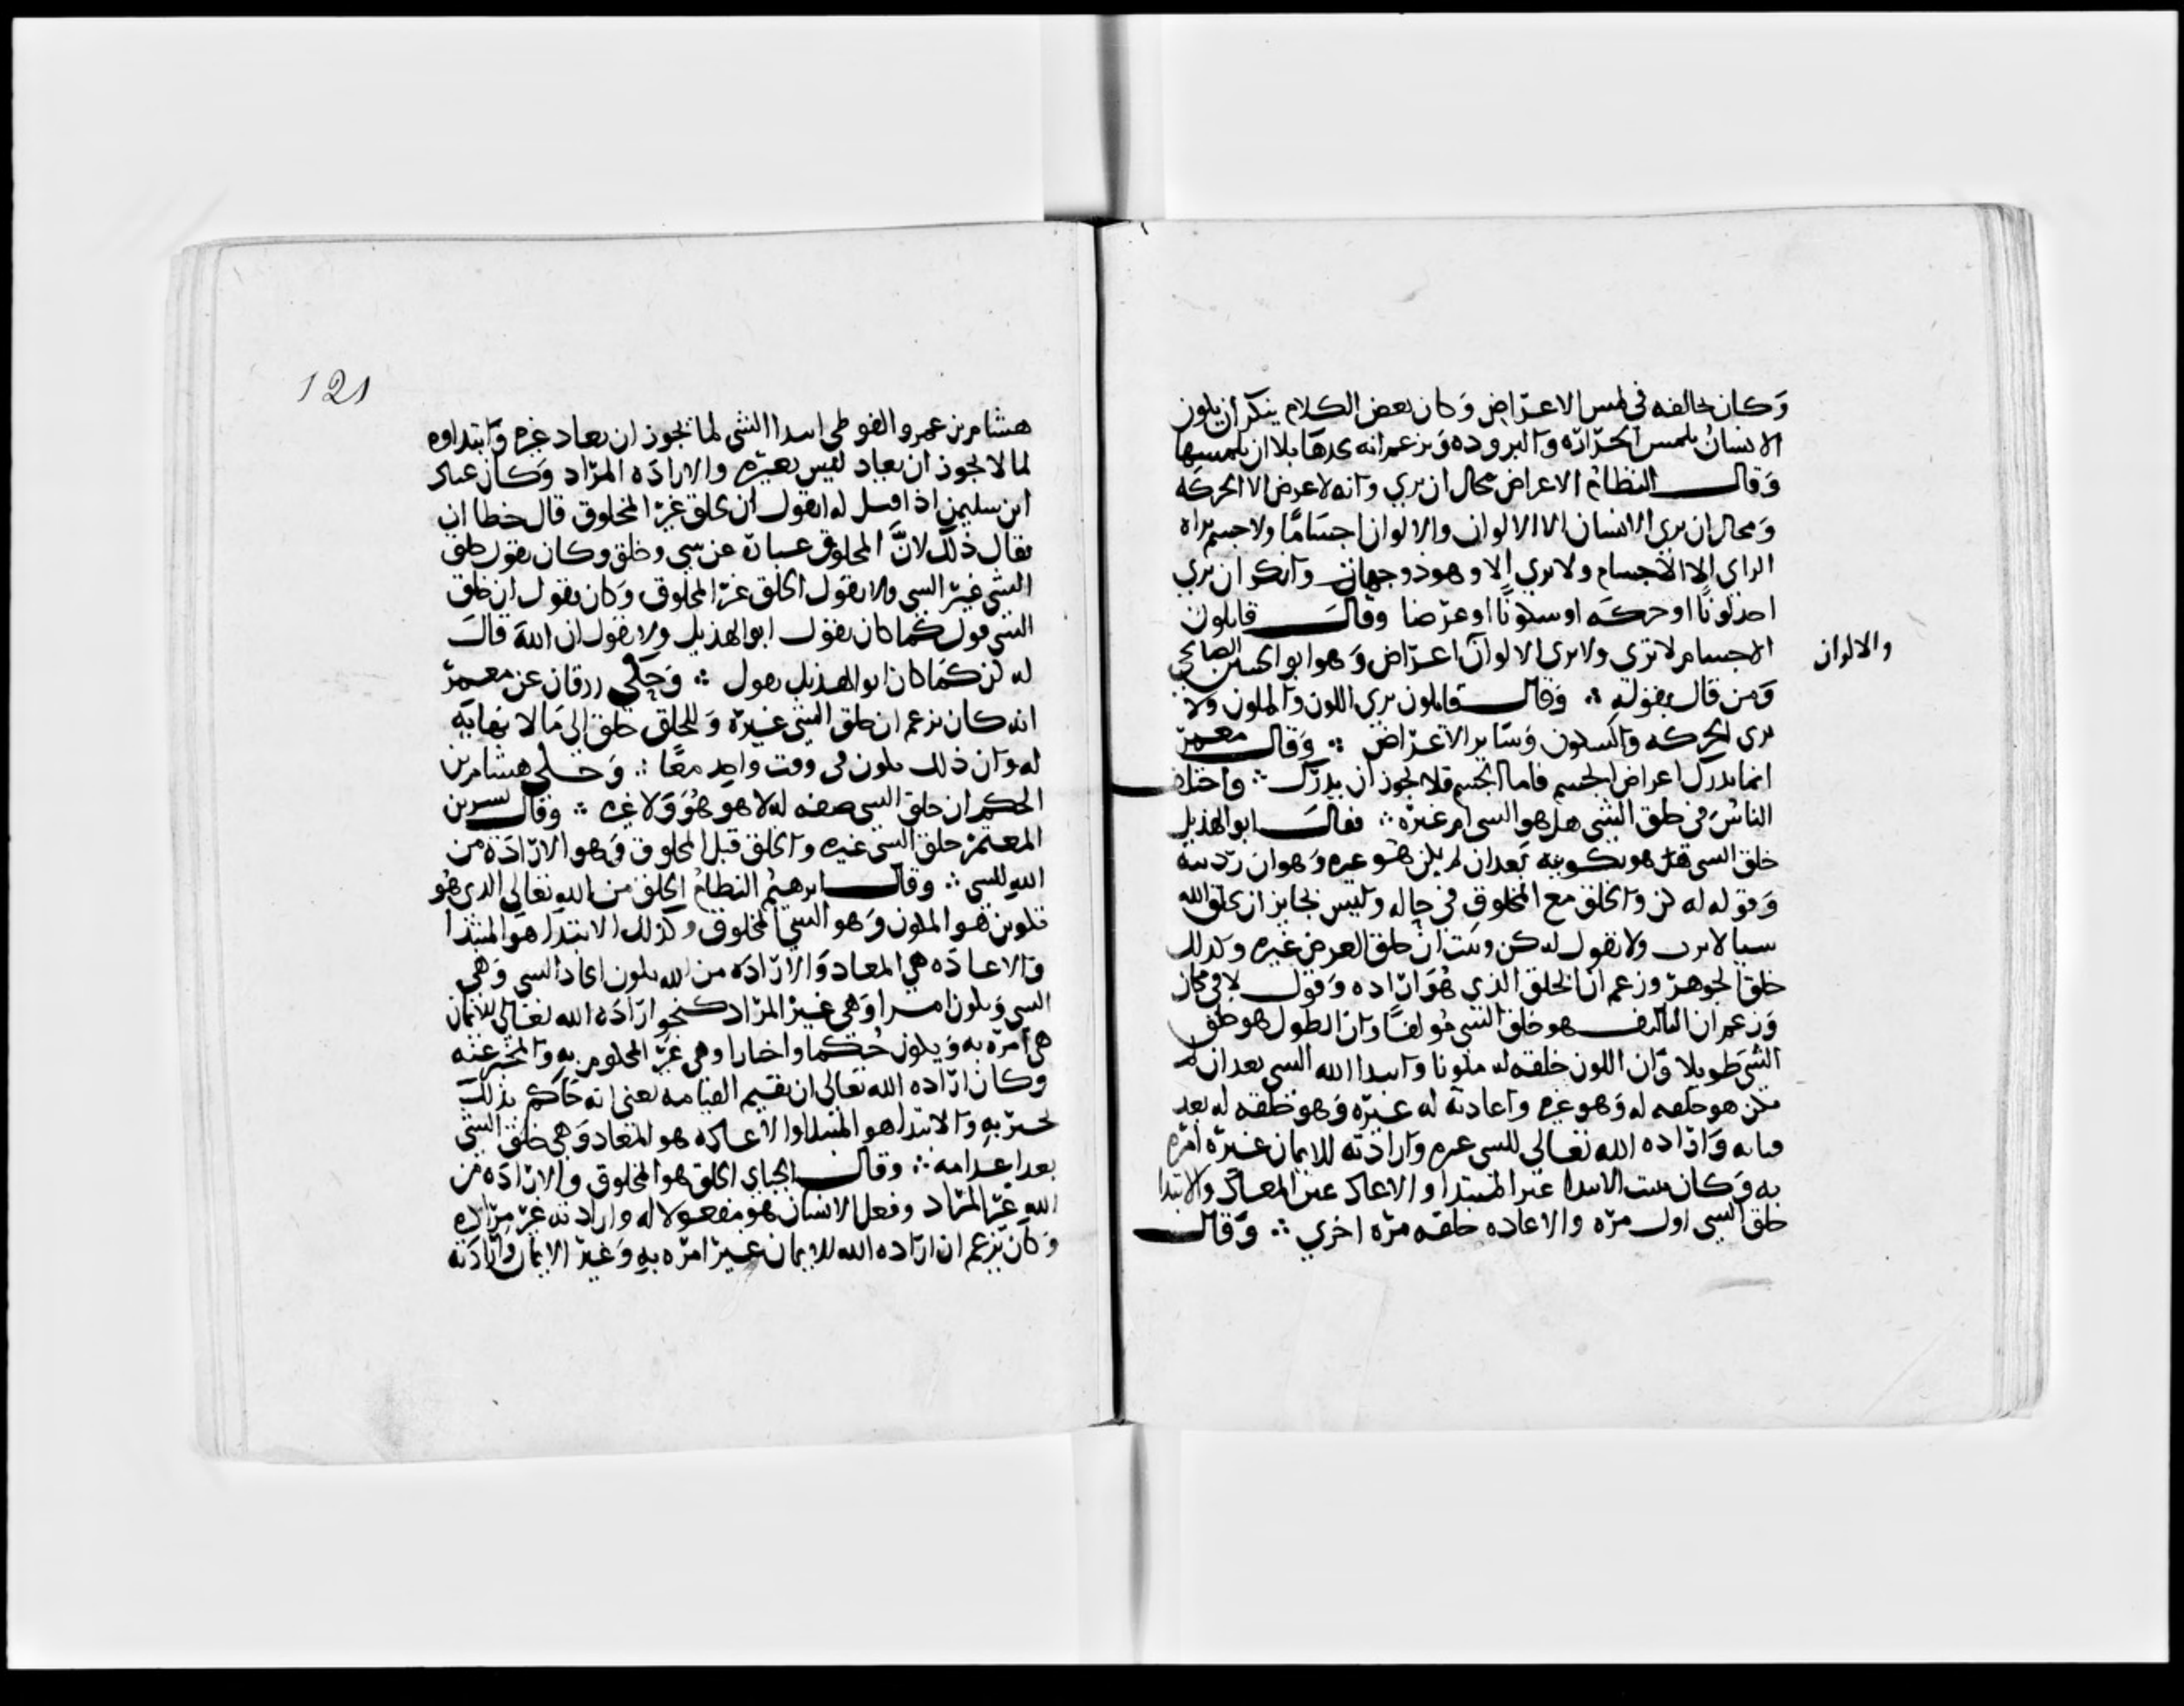 وكان يخالفه في لمس الاعراض وكان بعض اهل الكلام ينكر ان يكون
الانسان يلمس الحرارة والبرودة ويزعم انه يدركها بلا ان يلمسها
وقال النظام الاعراض محال ان ترى وانه لا عرض الا الحركه
ومحال ان يرى الانسان الا الالوان والالوان اجسام ولا جسم يراه
الراي الا الاجسام ولا يرى الا وهو ذو جهات وانكر ان يرى
احد لونا او حركه او سكونا او عرضا وقال قايلون
الاجسام لا ترى ولا يرى الا لوان اعراض وهو ابو الحسين الصالحي
والالوان
ومن قال بقوله ∴ وقال قايلون يرى اللون والملون ولا
يرى الحركه والسكون وساير الاعراض ∴ وقال معمر
انما يدرك اعراض الجسم فاما الجسم فلا يجوز ان يدرك ∴ واختلف
الناس في خلق الشي هل هو الشي ام غيره ∴ فقال ابو الهذيل
خلق الشي هو تكوينه بعد ان لم يكن هو غيره وهو ارادته
وقوله له كن والخلق مع المخلوق في حاله وليس بجايز ان يخلق الله
شيا لا يريده ولا يقول له كن وثبت ان خلق العرض غيره وكذلك
خلق الجوهر وزعم ان الخلق الذي هو اراده وقول لا في مكان
وزعم ان التاليف هو خلق الشي مولفا وان الطول هو خلق
الشي طويلا وان اللون خلقه له ملونا وابتدا الله الشي بعد ان لم
يكن هو خلقه له وهو غيره واعادته له غيره وهو خلقه له بعد
فنايه واراده الله تعالى للشي غيره وارادته للايمان غيره امره
به وكان يثبت الابتدا غير المبتدا والاعاده غير المعاد والابتدا
خلق الشي اول مره والاعاده خلقه مره اخرى ∴ وقال
121
هشام بن عمرو الفوطي ابتدا الشي لما يجوز ان يعاد غيره وابتداوه
لما لا يجوز ان يعاد ليس بغيره والاراده المراد وكان عباد
ابن سليمن اذا قيل له اتقول ان الخلق غير المخلوق قال خطا ان
يقال ذلك لان المخلوق عبارة عن شي وخلق وكان يقول خلق
الشي غير الشي ولا يقول الخلق غير المخلوق وكان يقول ان خلق
الشي قول كما كان يقول ابو الهذيل ولا يقول ان الله قال
له كن كما كان ابو الهذيل يقول ∴ وحكي زرقان عن معمر
انه كان يزعم ان خلق الشي غيره وللخلق خلق الى ما لا نهاية
له وان ذلك يكون في وقت واحد معا ∴ وحكى هشام بن
الحكم ان خلق الشي صفه له لا هو هو ولا غيره ∴ وقال بشر بن
المعتمر خلق الشي غيره والخلق قبل المخلوق وهو الارادة من
الله للشي ∴ وقال ابرهيم النظام الخلق من الله تعالى الذي هو
تكوين هو المكون وهو الشي المخلوق وكذلك الابتدا هو المبتدا
والاعاده هي المعاد والاراده من الله تكون ايجادا للشي وهي
الشي وتكون امرا وهي غير المراد كنحو اراده الله تعالى للايمان
هي امره به وتكون حكما واخبارا وهي غير المحكوم به والمخبر عنه
وكان اراده الله تعالى ان يقيم القيامه يعني انه حاكم بذلك
مخبر به والابتدا هو المبتدا والاعاده هو المعاد وهي خلق الشي
بعد اعدامه ∴ وقال الجباي الخلق هو المخلوق والاراده من
الله غير المراد وفعل الانسان هو مفعولا له وارادته غير مراده
وكان يزعم ان اراده الله للايمان غير امره به وغير الايمان وارادته